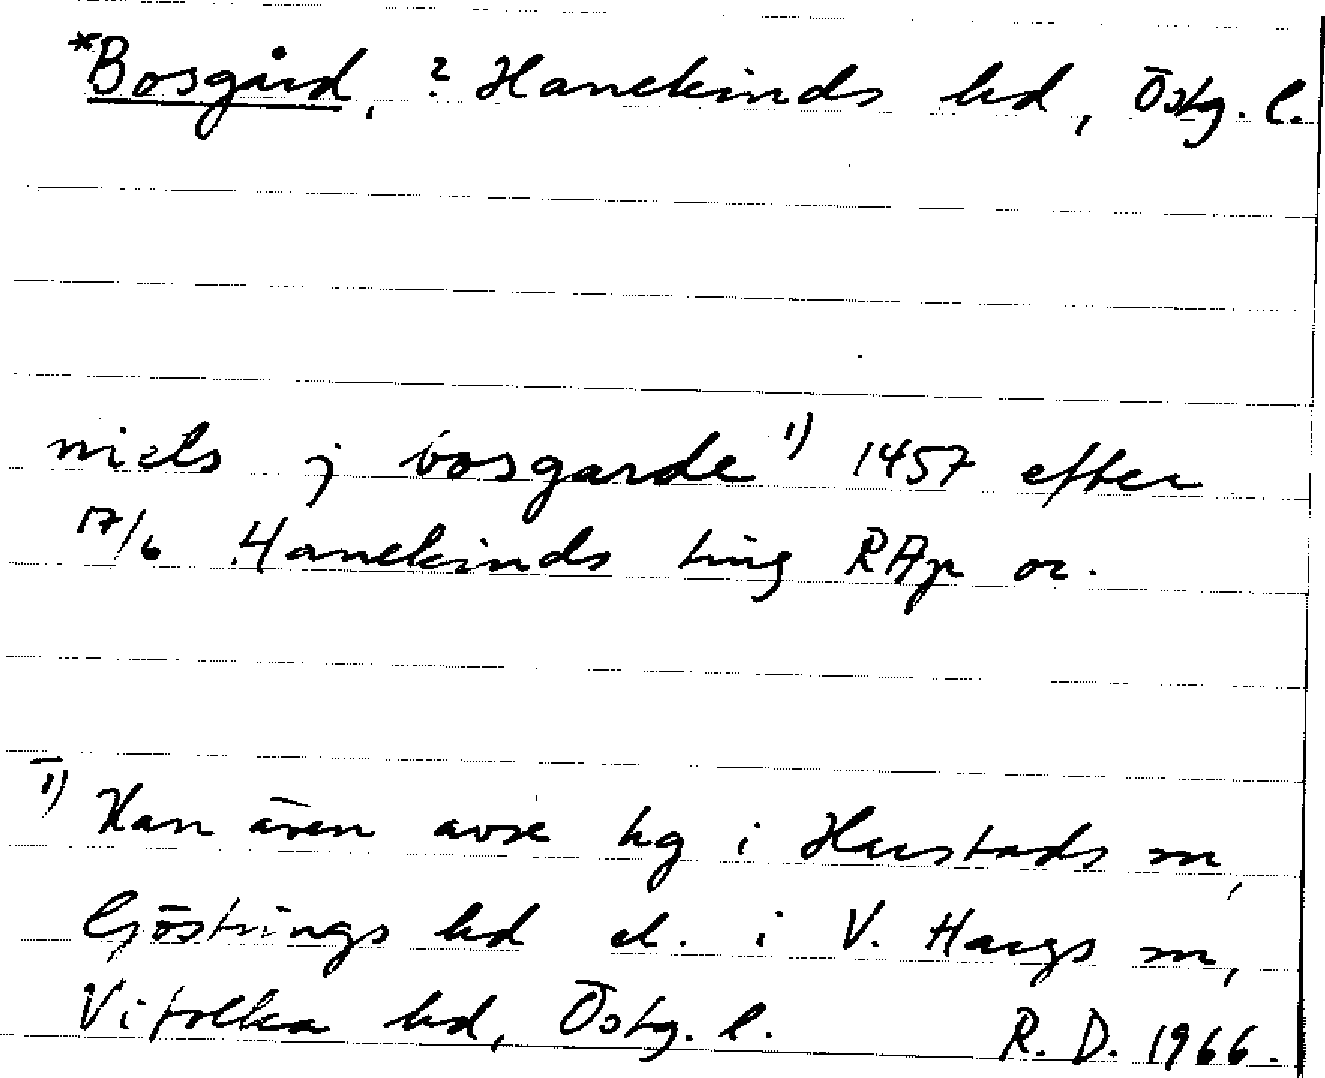 *Bosgård, ? Hanekinds hd, Östg. l.
niels j bosgarde 1) 1457 efter
17/6 Hanekinds ting RAp or.
1) Kan även avse hg i Harstads sn,
Göstrings hd el. i V. Hargs sn,
Vifolka hd, Östg. l. R. D. 1966.